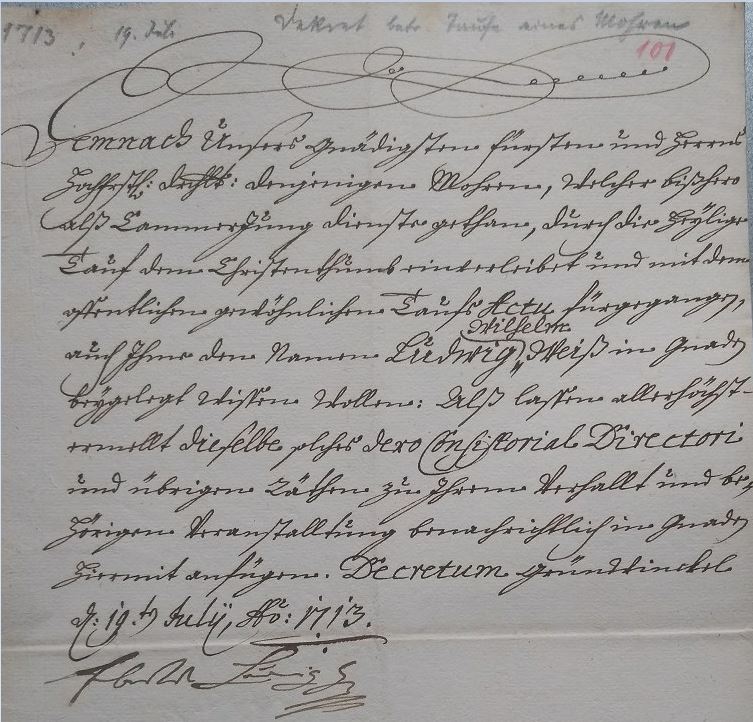 1713, 19. Juli Dekret betr. Taufe eines Mohren
101
Demnach Unsers Gnädigsten Fürsten und Herrns
Hochfrstl: Drchlt: denjenigen Mohren, welcher bißhero
alß CammerJung dienste gethan, durch die Heylige
Tauf dem Christenthumb einverleibet und mit dem
offentlichen gewöhnlichen Taufs Actu fürgegangen,
Wilhelm
auch Ihme den Namen Ludwig Weiß in Gnaden
beygelegt wissen wollen: Alß lassen allerhöchst-
ermellt dieselbe solches dero Consistorial Directori
und übrigen Räthen zu Ihrem Verhallt und be-
hörigen Veranstalltung benachrichtlich in Gnaden
hiermit anfügen. Decretum Grünwinckel
d: 19ten July, Ao: 1713.